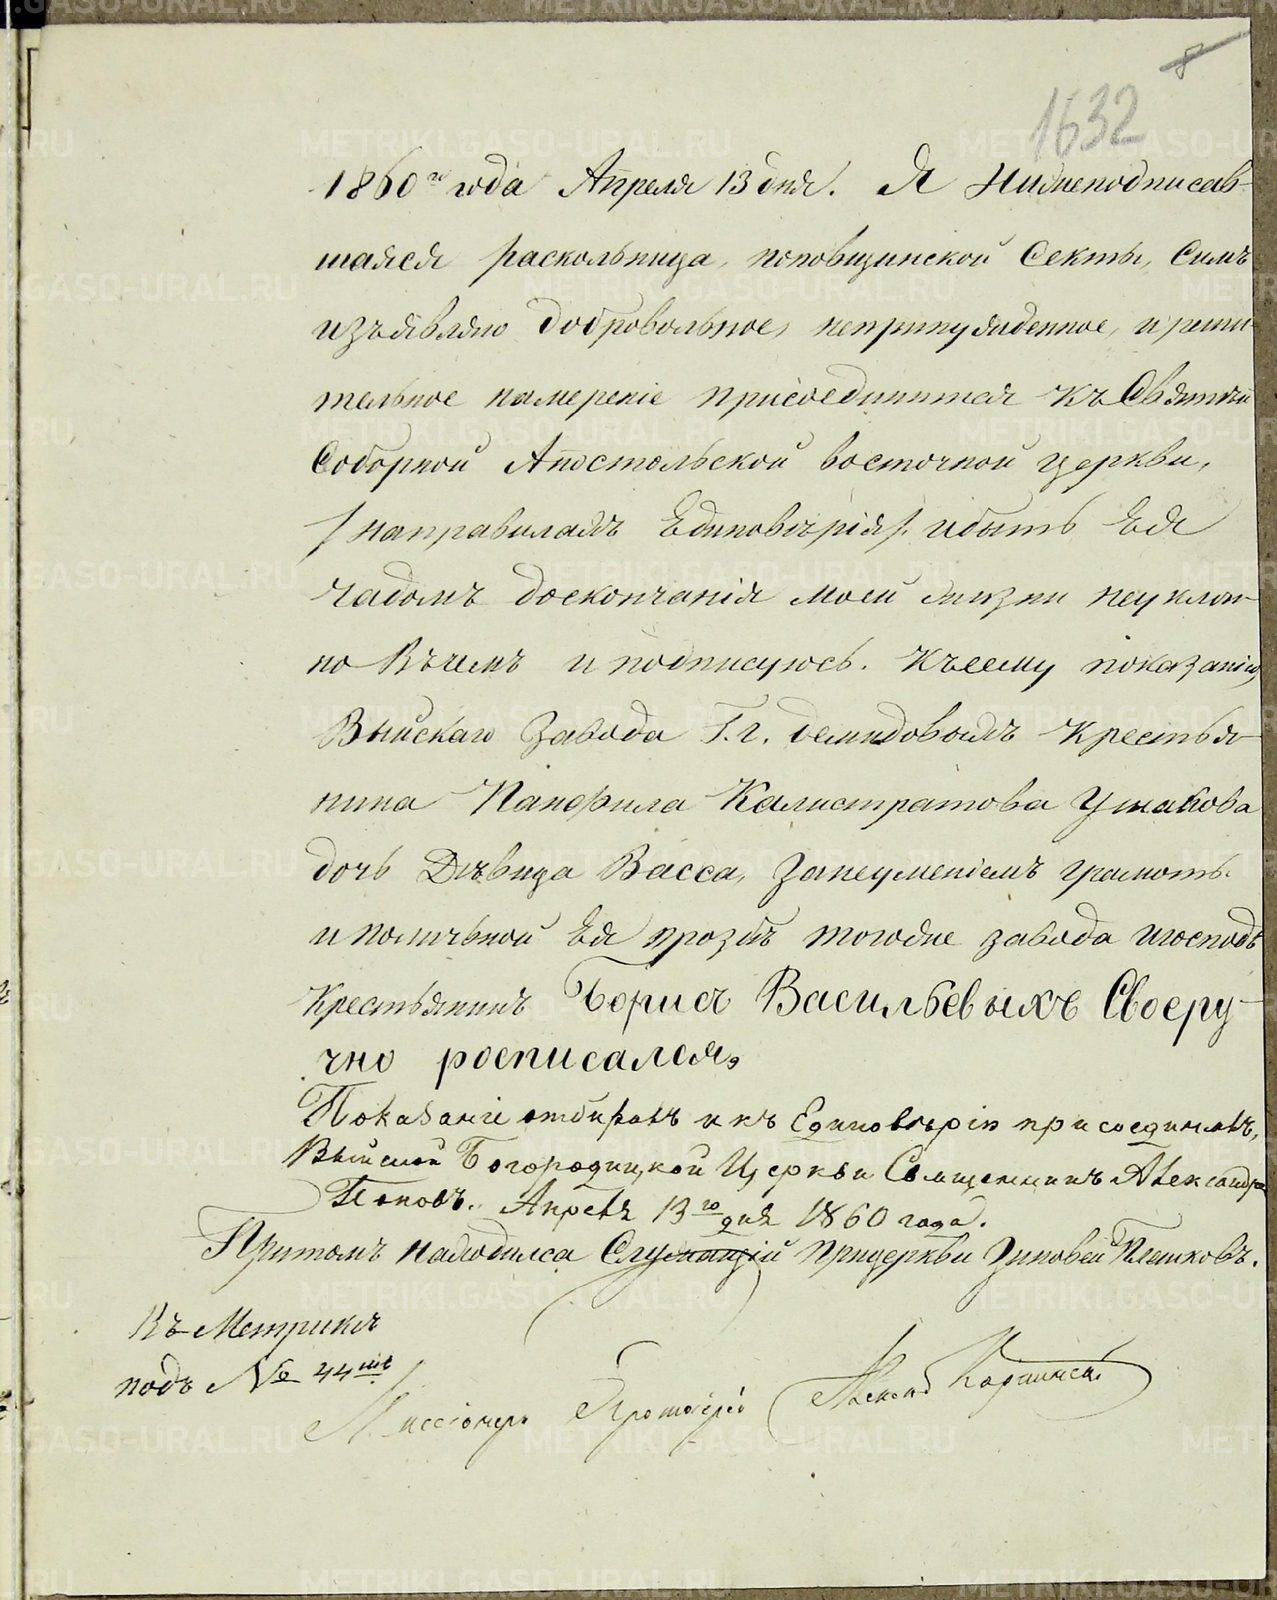 8
1632
1860го года Апреля 13 дня. Я Нижеподписав-
шаяся раскольница, поповщинской Секты, Симъ
изъявляю добровольное, непринужденное, и реши
тельное намерение присоединится къ Святой
Соборной Апостольской восточной церкви,
/на правилахъ Единоверія/. и быть Ея
чадомъ до скончанія моей жизни неуклон-
но Въ чемъ и подписуюсь. Къ сему показанію,
Выйскаго Завода Г.г. демидовыхъ Крестья-
нина Панфила Калистратова Ушакова
дочь Дѣвица Васса, за неумениемъ грамоть.
и по личьной Ея прозбѣ того же завода и господъ
Крестьянинъ Борисъ Васильевыхъ Своеру-
чно росписался,
Показаніе отбиралъ и къ Единоверію присоединилъ,
Выйской Богородицкой Церкви Священникъ Александръ
Поповъ. Апреля 13го дня 1860 года.
При томъ находился Служащій при церкви Зиновей Плешковъ.
Въ Метрике
подъ № 44мъ
Миссіонеръ Протоіерей